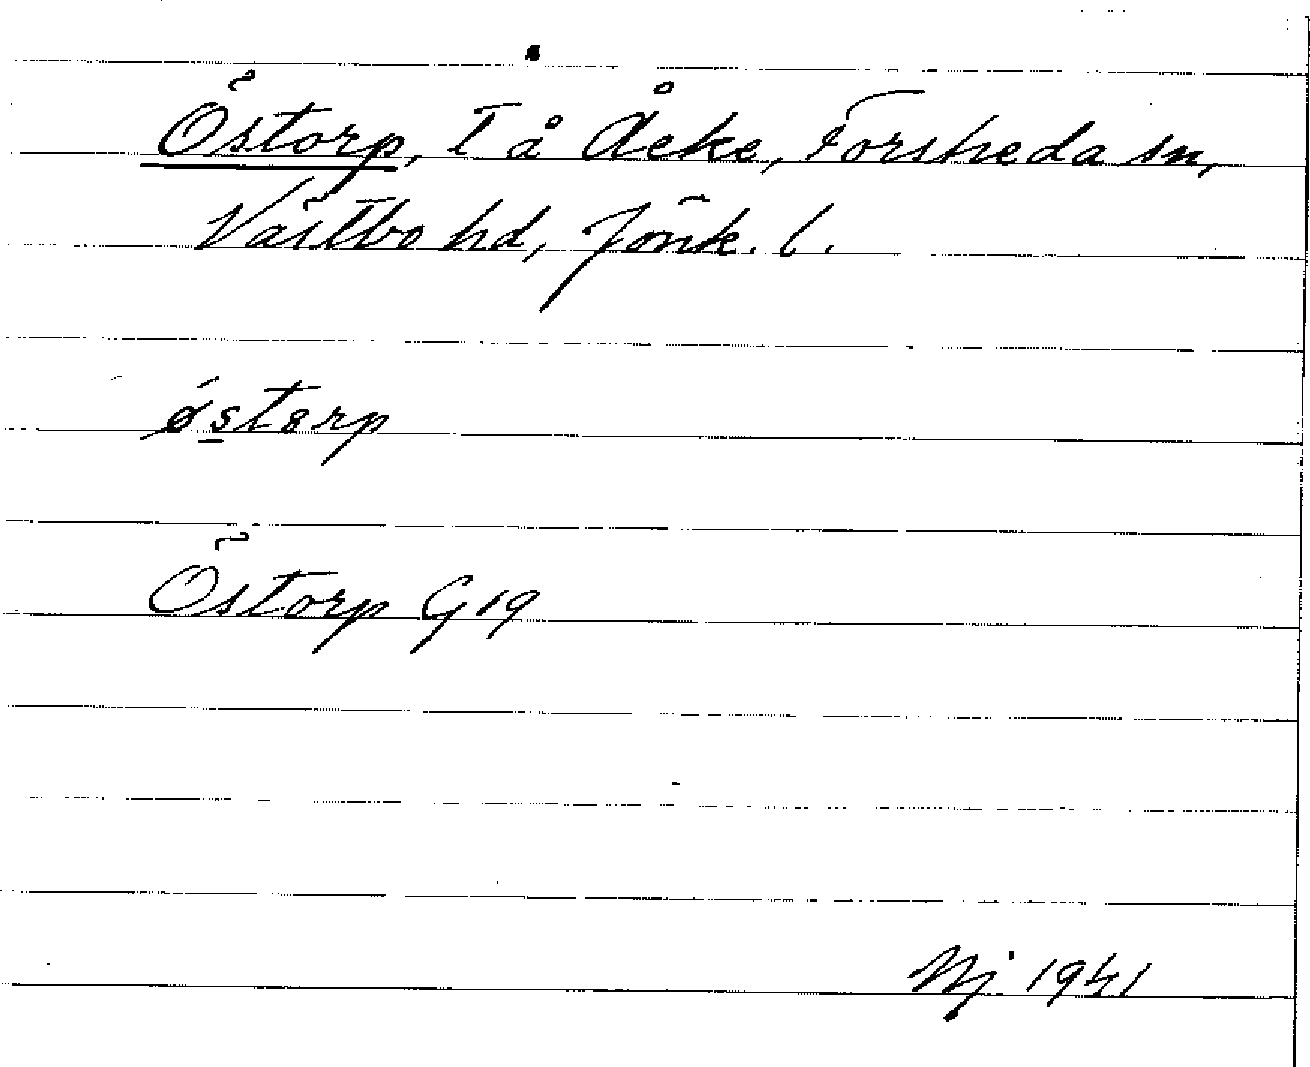 Östorp, T å Åeke, Forsheda sn,
Västbo hd, Jönk. l.
østorp
Östorp G19
Nj 1941